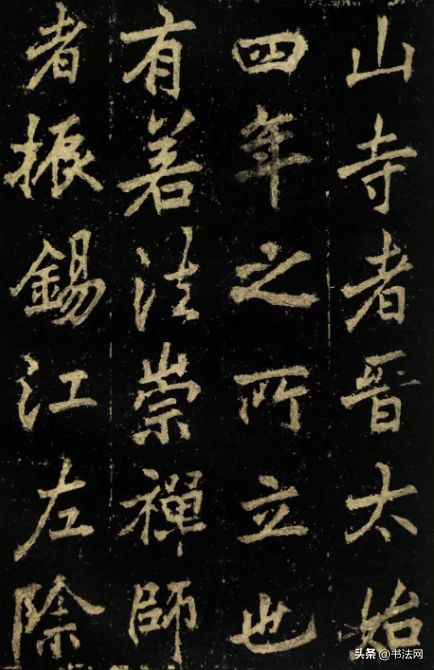 山寺者晉太始
四年之所立也
有若法崇禪師
者振錫江左除
头条@书法网